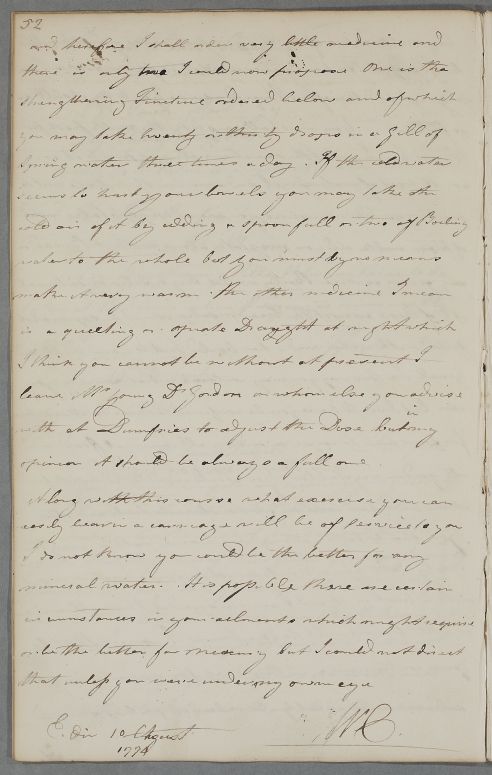 52
and therefore I shall order very little medicine and
there is only two I could now propose. One is the
strengthening Tincture ordered below and of which
you may take twenty or thirty drops in a gill of
Spring water three times a day. If the cold water
seems to hurt your bowels you may take the
cold air of it by adding a spoonfull or two of Boiling
water to the whole but you must by no means
make it very warm. The other medicine I mean
is a quieting or opiate Draught at night which
I think you cannot be without at present I
leave Mr Young Dr Gordon or whom else you advise
with at Dumfries to adjust the Dose but in my
opinion it should be always a full one.
Along with this course what exercise you can
easily bear in a carriage will be of service to you
I do not know you would be the better for any
mineral water. It is possible there are certain
circumstances in your ailments which might require
or be the better for mercury but I could not direct
that unless you were under my own eye
Edin 10 August
1774
WC.